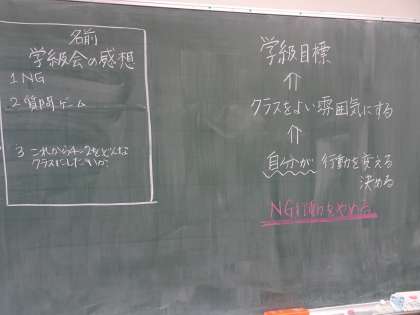 名前
学級会の感想
1 NG
2 質問ゲーム
3 これから4-2をどんな
クラスにしたいか
学級目標
⇑
クラスをよい雰囲気にする
⇑
自分が 行動を変える
決める
NG行動をやめる